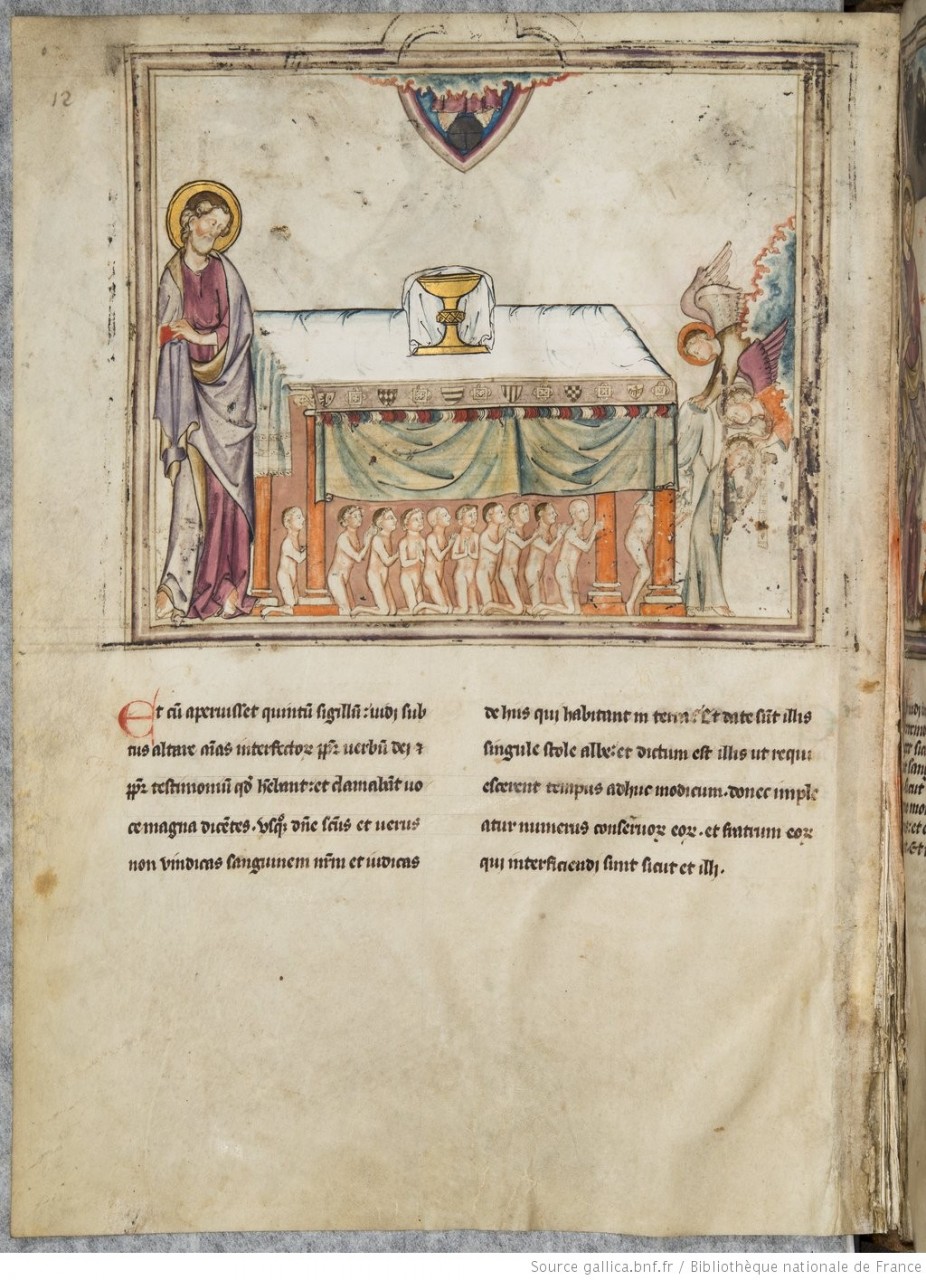 12
Et cū aperuisset quintū sigillū: uidi sub
tus altare aīas interfectoꝝ ꝓpt̄ uerbū dei ⁊
ꝓpt̄ testimoniū qd̄ h̄ebant: et clamabāt uo
ce magna dicētes. vsq̨ dn̄e sc̄us et uerus
non vindicas sanguinem nr̄m et iudicas
de hiis qui habitant in terra. Et date sūt illis
singule stole albe: et dictum est illis ut requi
escerent tempus adhuc modicum. donec imple
atur numerus conseruoꝝ eoꝝ. et fratrum eoꝝ
qui interficiendi sunt sicut et illi.
Source gallica.bnf.fr / Bibliothèque nationale de France